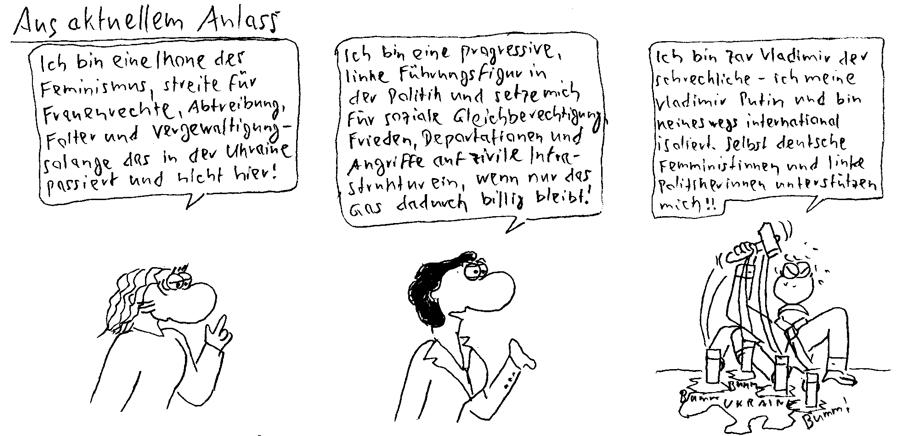 Aus aktuellem Anlass
Ich bin eine Ikone des
Feminismus, streite für
Frauenrechte, Abtreibung,
Folter und Vergewaltigung-
solange das in der Ukraine
passiert und nicht hier!
Ich bin eine progressive,
linke Führungsfigur in
der Politik und setze mich
für soziale Gleichberechtigung,
Frieden, Deportationen und
Angriffe auf zivile Infra-
struktur ein, wenn nur das
Gas dadurch billig bleibt!
Ich bin Zar Vladimir der
schreckliche - ich meine
Vladimir Putin und bin
keineswegs international
isoliert. Selbst deutsche
Feministinnen und linke
Politikerinnen unterstützen
mich!!
Bumm
Bumm
UKRAINE
Bumm!